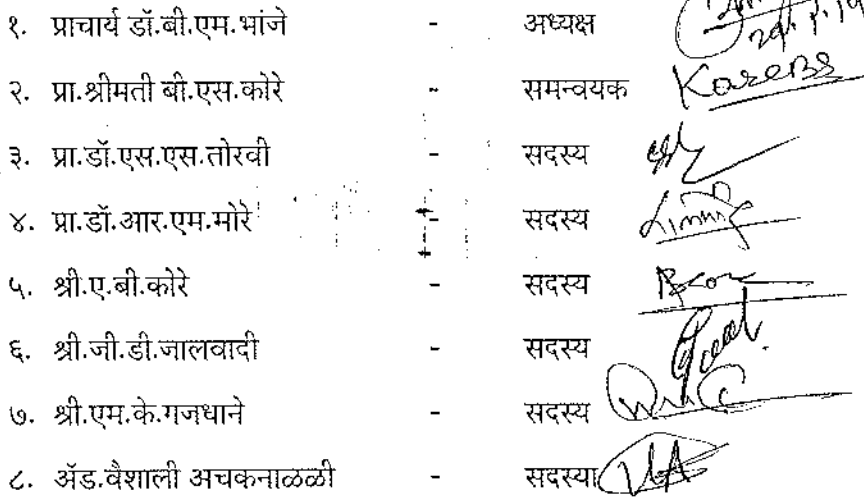 १. प्राचार्य डॉ.बी.एम.भांजे - अध्यक्ष
२. प्रा.श्रीमती बी.एस.कोरे - समन्वयक KoreBS
३. प्रा.डॉ.एस.एस.तोरवी - सदस्य
४. प्रा.डॉ.आर.एम.मोरे - सदस्य
५. श्री.ए.बी.कोरे - सदस्य
६. श्री.जी.डी.जालवादी - सदस्य
७. श्री.एम.के.गजधाने - सदस्य
८. ॲड.वैशाली अचकनाळळी - सदस्या